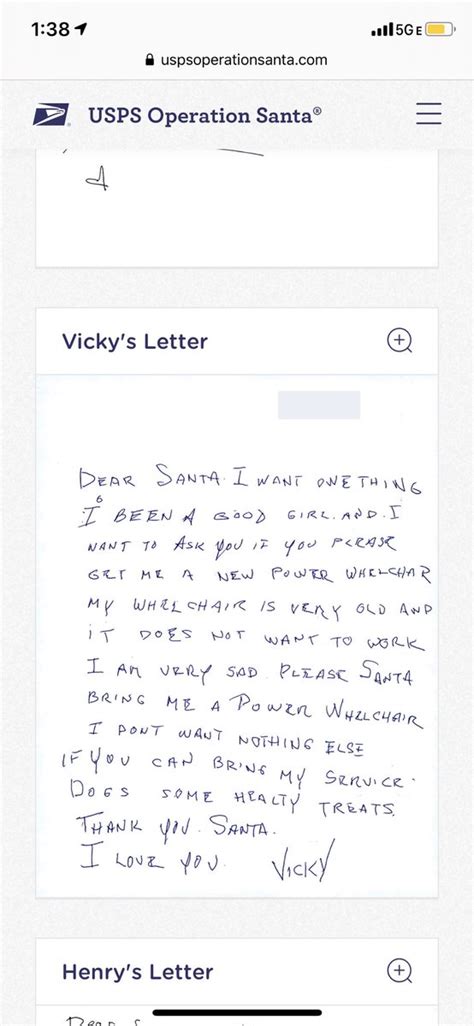 1:38
5GE
uspsoperationsanta.com
USPS Operation Santa®
Vicky's Letter
DEAR SANTA. I WANT ONE THING
I BEEN A GOOD GIRL. AND. I
WANT TO ASK YOU IF YOU PLEASE
GET ME A NEW POWER WHELCHAR
MY WHEELCHAIR IS VERY OLD AND
iT DOES NOT WANT TO WORK
I AM VERY SAD PLEASE SANTA
BRING ME A POWER WHELCHAIR
I DONT WANT NOTHING ELSE
IF YOU CAN BRING MY SERVICE.
DOGS SOME HEALTY TREATS.
THANK YOU. SANTA.
I LOVE YOU. VICKY
Henry's Letter